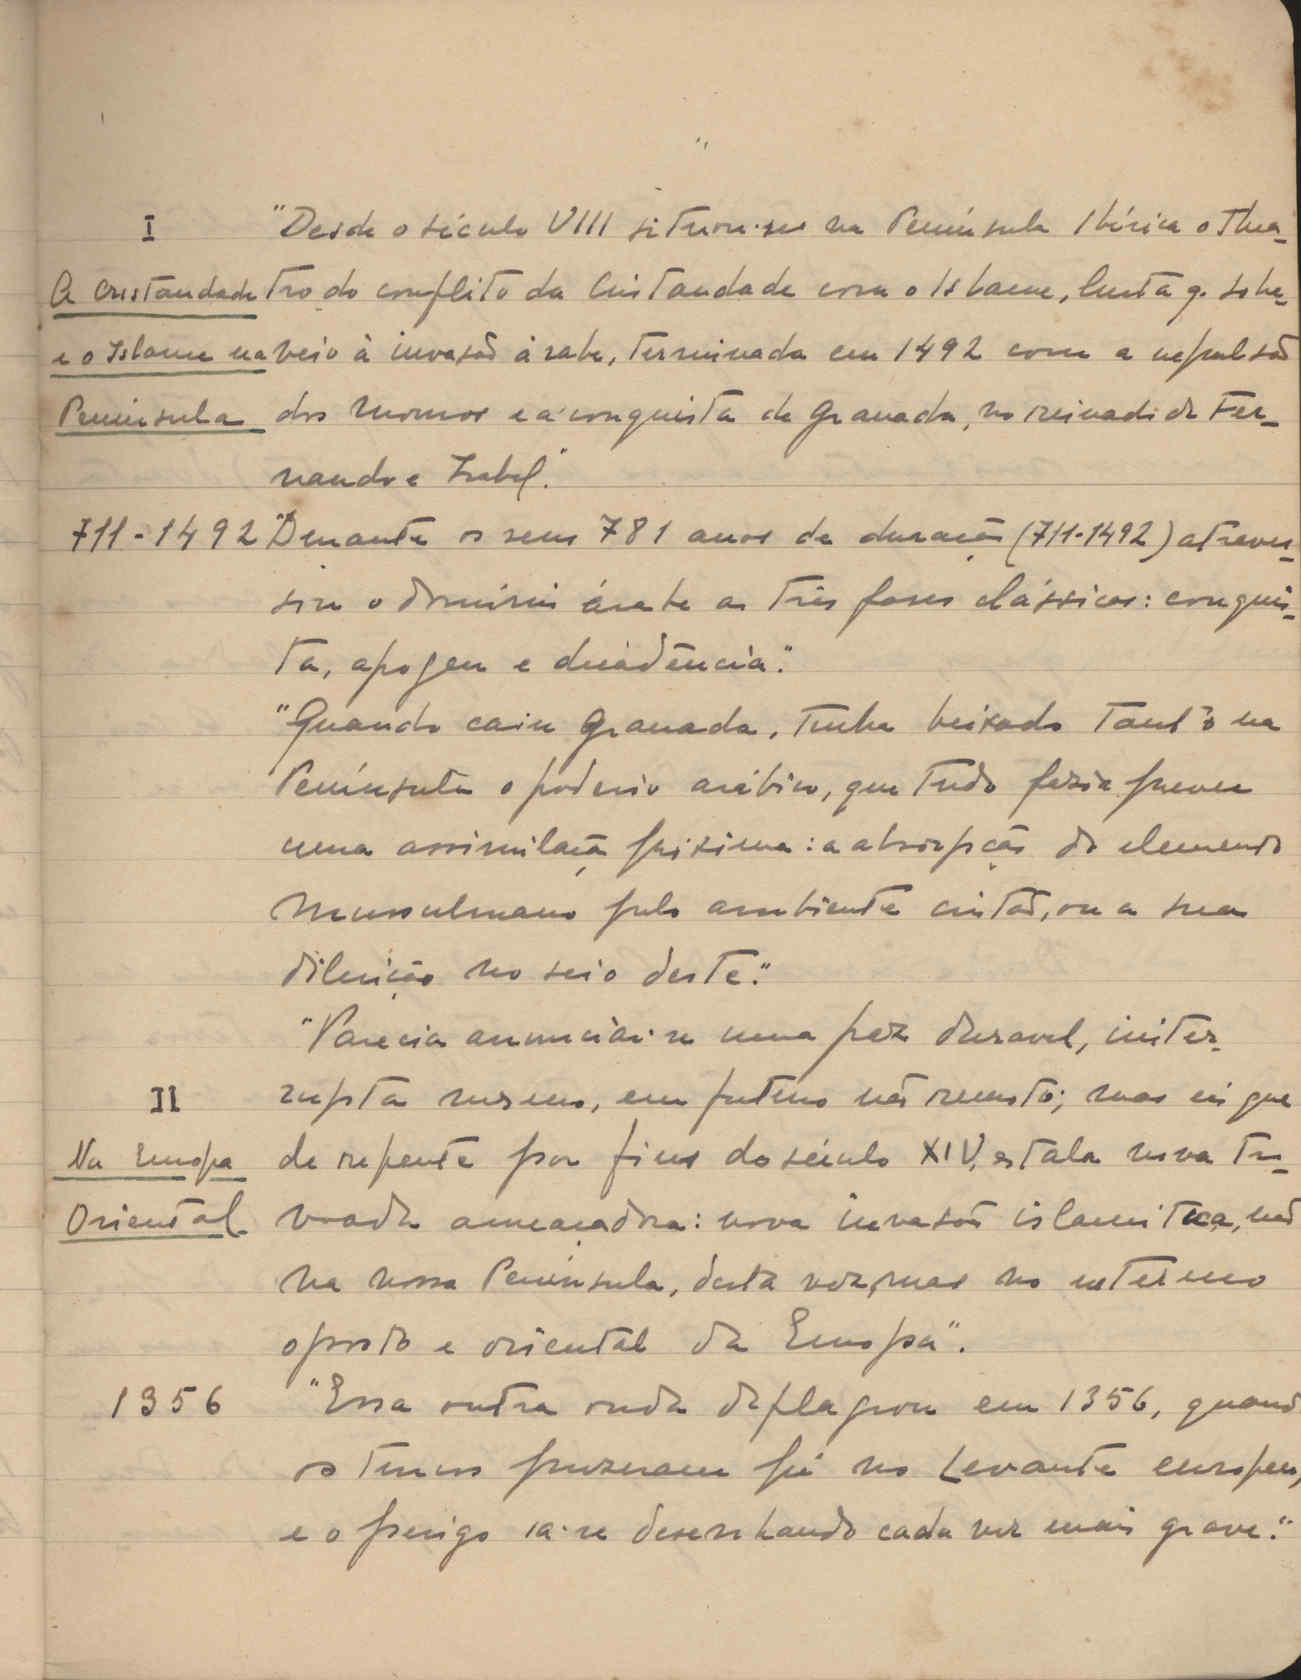 I
"Desde o século VIII situou-se na Península Ibérica o Thea-
A cristandade
tro do conflito da Cristandade com o Islame, lucta q. sobre-
e o Islame na
veio à invasão árabe, terminada em 1492 com a repulsão
Península
dos mouros e a conquista de Granada, no reinado de Fer-
nando e Isabel."
711-1492
"Durante os seus 781 anos de duração (711-1492) atraves-
sou o domínio árabe as três fases clássicas: conquis-
ta, apogeu e decadência."
"Quando caiu Granada, tinha baixado tanto na
Península o poderio arábico, que tudo fazia prever
uma assimilação próxima: a absorpção do elemento
mussulmano pelo ambiente cristão, ou a sua
diluição no seio deste."
"Parecia anunciar-se uma paz duravel, inter-
rupta mesmo, em futuro não remoto; mas eis que
II
de repente por fins do século XIV, estala nova tro-
Na Europa
voada ameaçadora: nova invasão islamitica, não
Oriental
na nossa Península, desta vez, mas no extremo
oposto e oriental da Europa".
1356
"Essa outra onda deflagrou em 1356, quando
os turcos puzeram pé no Levante europeu,
e o perigo ia-se desenhando cada vez mais grave."